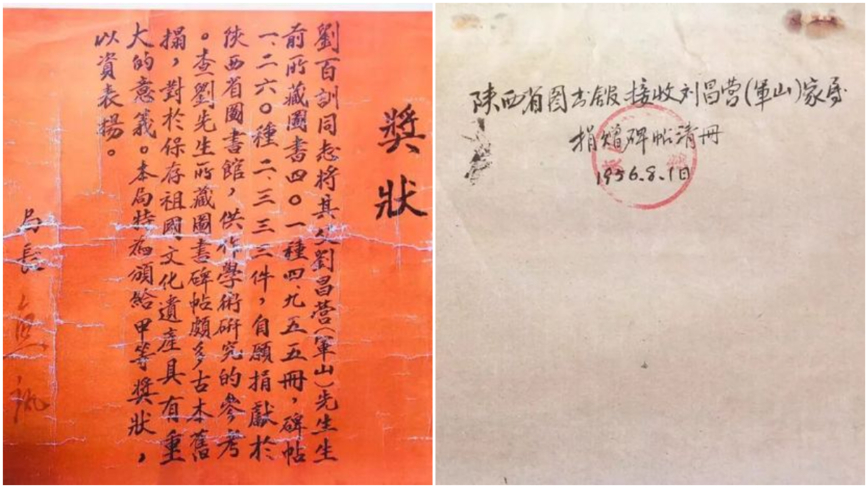 獎狀
劉百訓同志將其父劉昌营(軍山)先生生
前所藏圖書四〇一種四、九五五冊，碑帖
一、二六〇種二、三三三件，自願捐獻於
陝西省圖書館，供作學術研究的參考
。查劉先生所藏圖書碑帖頗多古本舊
搨，對於保存祖國文化遺產具有重
大的意義。本局特為頒給甲等獎狀，
以資表揚。
局長
陕西省图书舘接收刘昌营(軍山)家属
捐赠碑帖清册
1956.8.1日